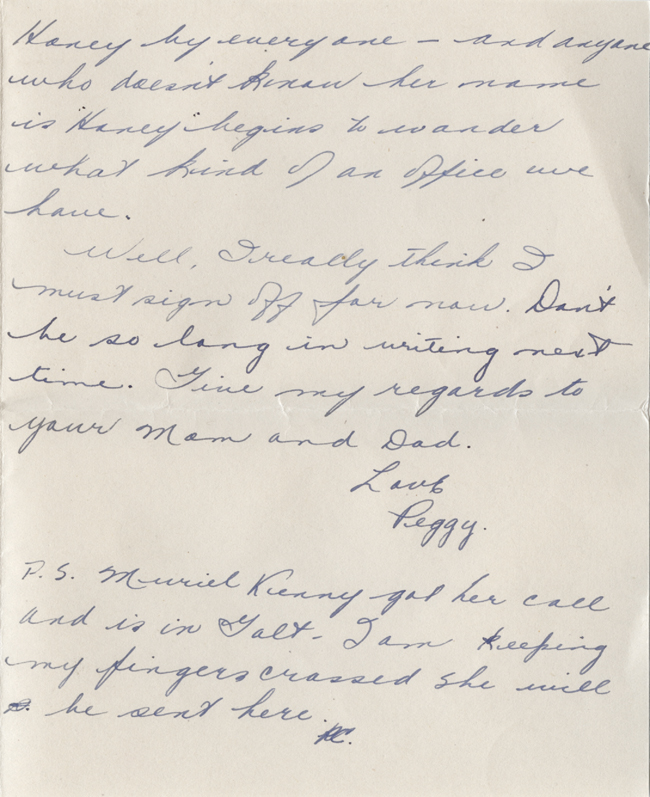 Honey by everyone – and anyone
who doesn't know her name
is "Honey" begins to wonder
what kind of an office we
have.
Well, I really think I
must sign off for now. Don't
be so long in writing next
time. Give my regards to
your Mom and Dad.
Love
Peggy.
P.S. Muriel Kenny got her call
and is in Galt – I am keeping
my fingers crossed she will
be sent here.